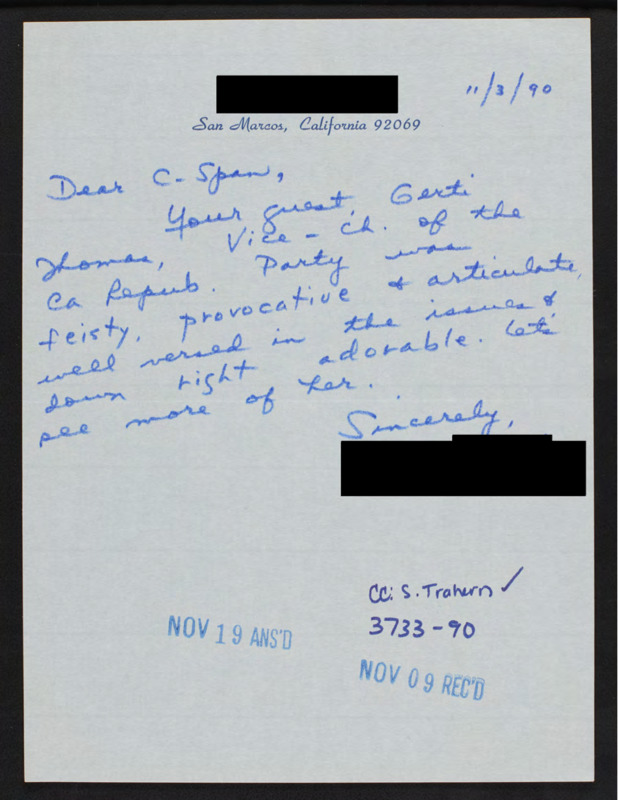 11/3/90
San Marcos, California 92069
Dear C-Span,
Your guest, Gerti
Thomas, Vice-Ch. of the
Ca Repub. Party was
feisty, provocative & articulate,
well versed in the issues &
down right adorable. Let's
see more of her.
Sincerely,
CC: S. Trahern ✓
3733-90
NOV 19 ANS'D
NOV 09 REC'D